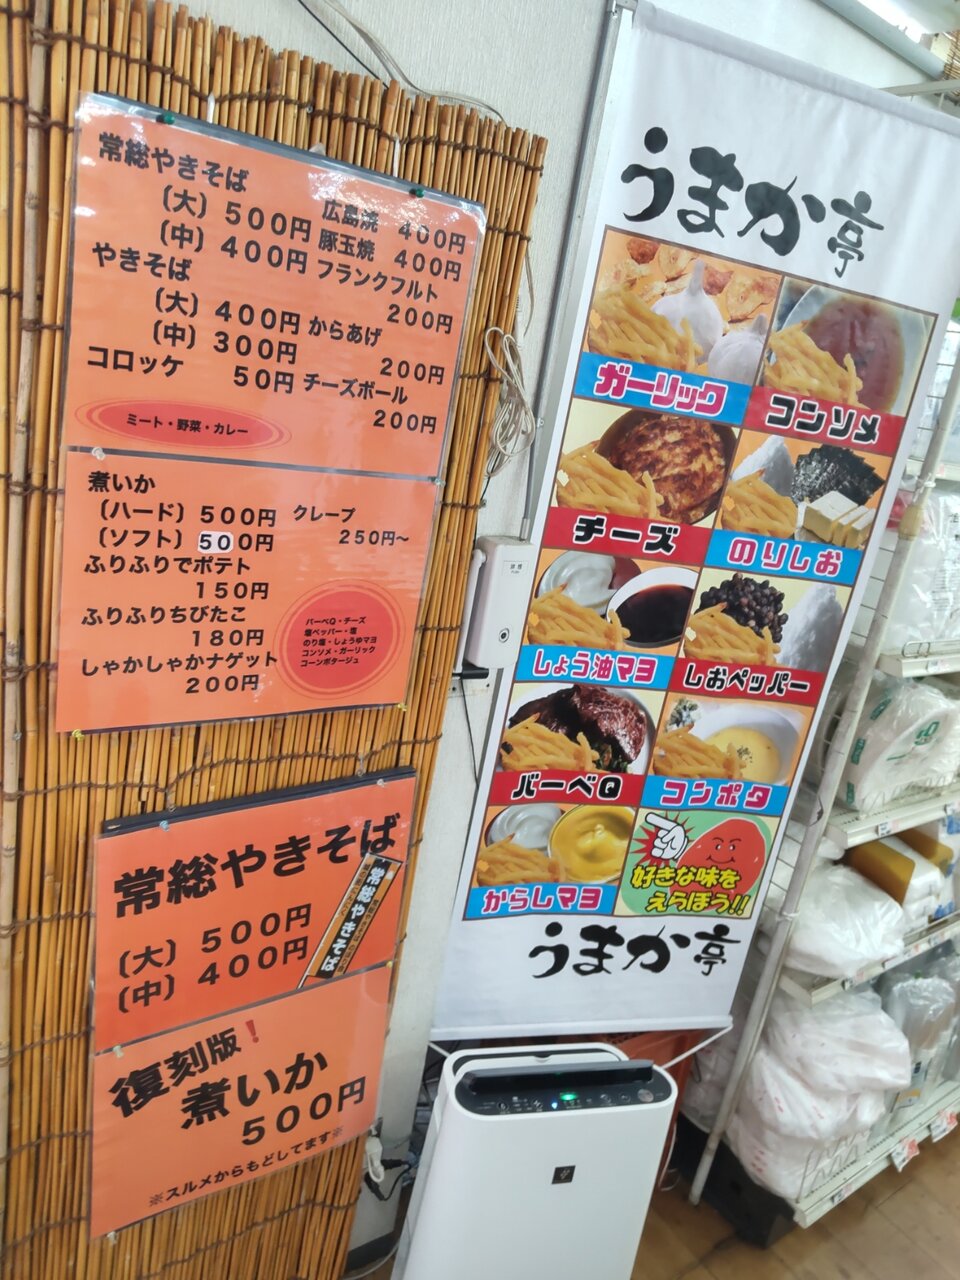 常総やきそば
(大) 500円
(中) 400円
やきそば
(大) 400円
(中) 300円
コロッケ 50円
ミート・野菜・カレー
広島焼 400円
豚玉焼 400円
フランクフルト
200円
からあげ
200円
チーズボール
200円
煮いか
(ハード) 500円
(ソフト) 500円
ふりふりでポテト
150円
ふりふりちびたこ
180円
しゃかしゃかナゲット
200円
クレープ
250円~
バーベQ・チーズ
塩ペッパー・塩
のり塩・しょうゆマヨ
コンソメ・ガーリック
コーンポタージュ
常総やきそば
(大) 500円
(中) 400円
常総やきそば
復刻版❗
煮いか
500円
※スルメからもどしてます※
うまか亭
ガーリック
コンソメ
チーズ
のりしお
しょう油マヨ
しおペッパー
バーベQ
コンポタ
からしマヨ
好きな味を
えらぼう!!
うまか亭